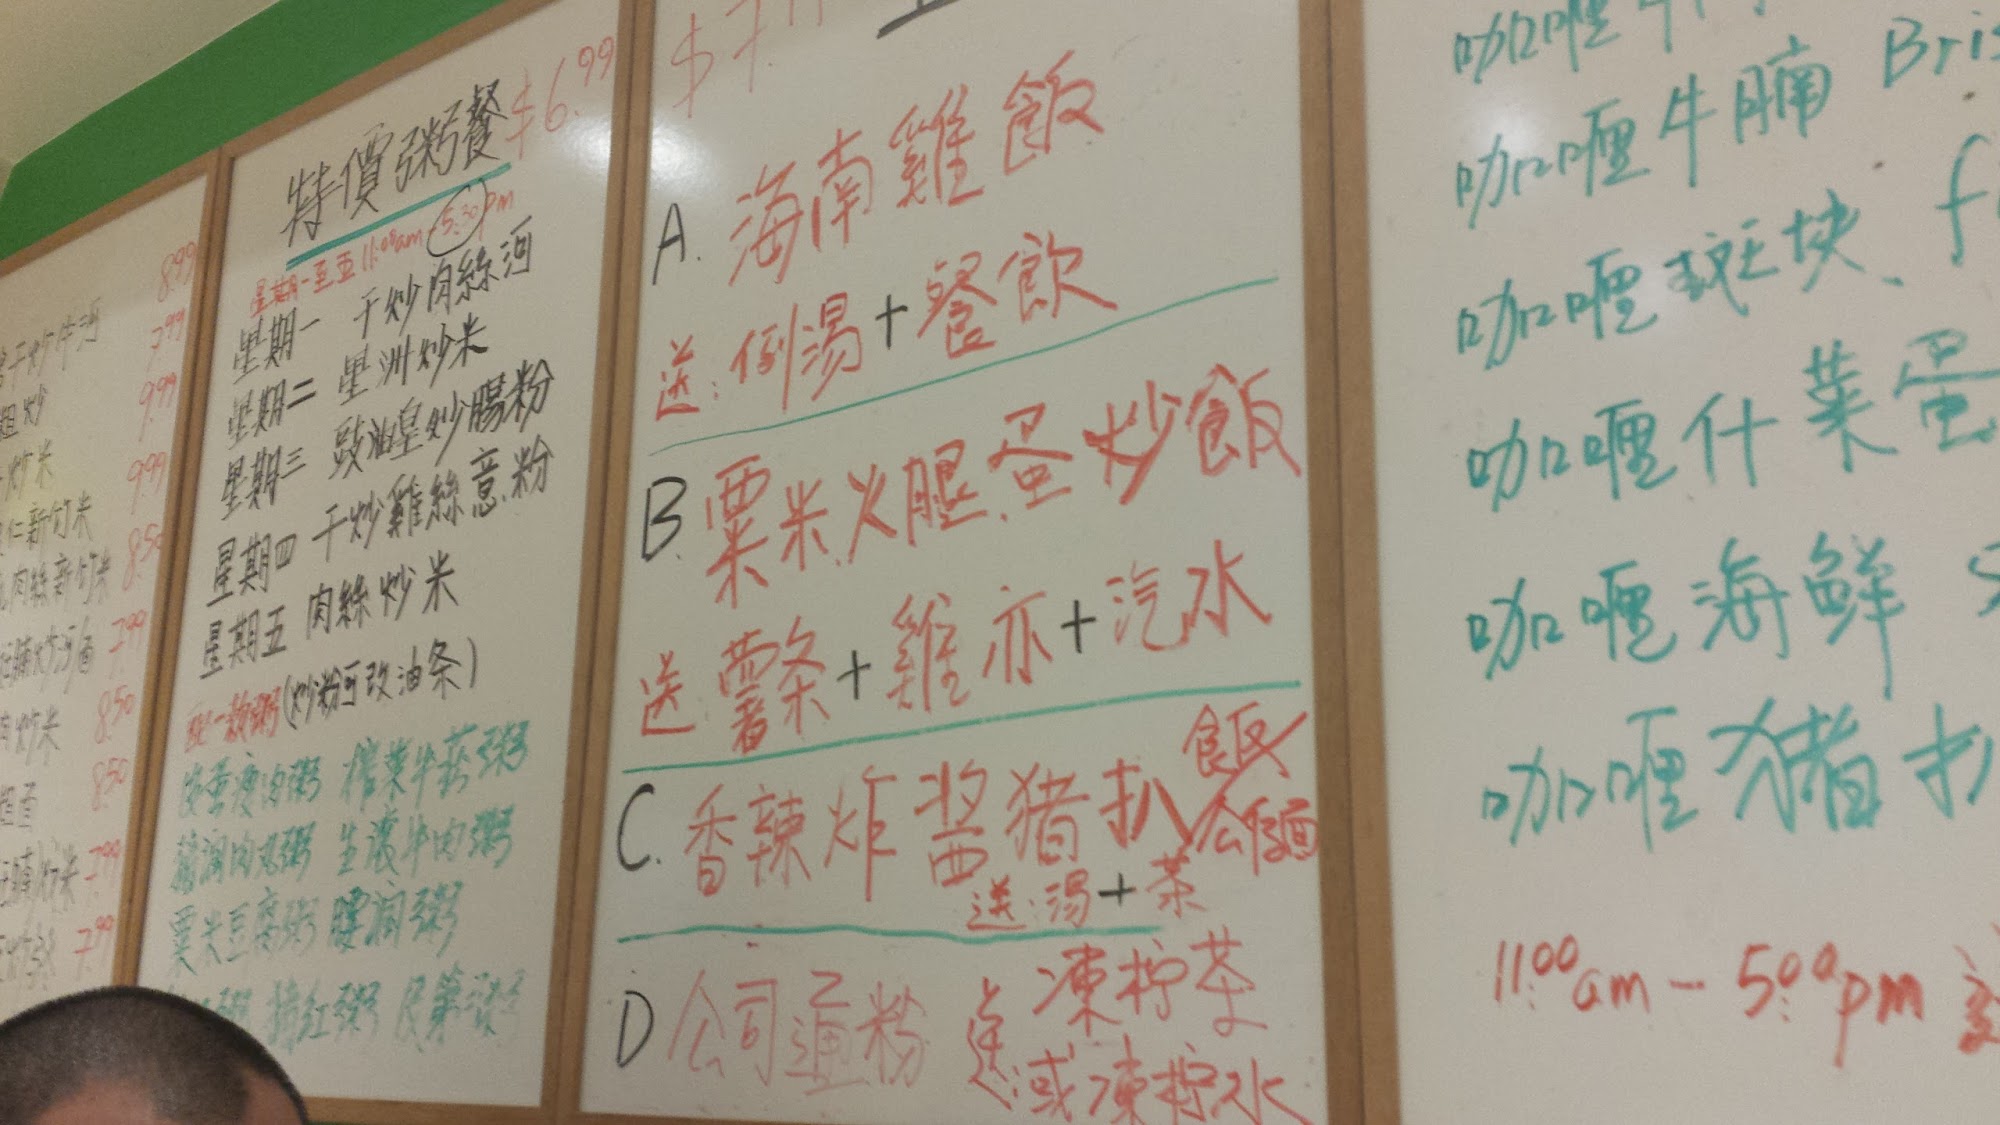 8.99
干炒牛河
7.99
粗炒
9.99
炒米
9.99
仁新竹米
8.50
肉絲新竹米
7.99
8.50
炒米
8.50
7.99
炒米
7.99
特價粥餐 $6.99
星期一至五 11:00am-5:30pm
星期一 干炒肉絲河
星期二 星洲炒米
星期三 豉油皇炒腸粉
星期四 干炒雞絲意粉
星期五 肉絲炒米
配一款粥(炒粉可改油条)
皮蛋瘦肉粥 榨菜牛菘粥
豬潤肉丸粥 生滾牛肉粥
粟米豆腐粥 膶粥
粥 豬紅粥 粥
A. 海南雞飯
送: 例湯+餐飲
B. 粟米火腿蛋炒飯
送: 薯条+雞亦+汽水
C. 香辣炸酱猪扒 飯/公仔面
送: 湯+茶
D 公司通粉 送: 凍柠茶
或凍柠水
咖喱牛
咖喱牛腩 Bris
咖喱斑块
咖喱什菜蛋
咖喱海鮮
咖喱猪扒
11:00am-5:00pm